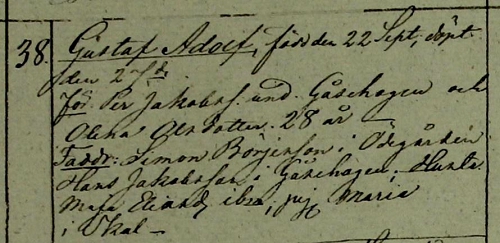 38. Gustaf Adolf, född den 22 Sept, döpt
den 27 d.
För. Per Jakobss. und. Gåshagen och
Olsdotter. 28 år
Faddr: Simon Börjesson i Ödegården
Hans Jakobsson i Gåshagen, Hustr.
Maja ibid, pig. Maria
i